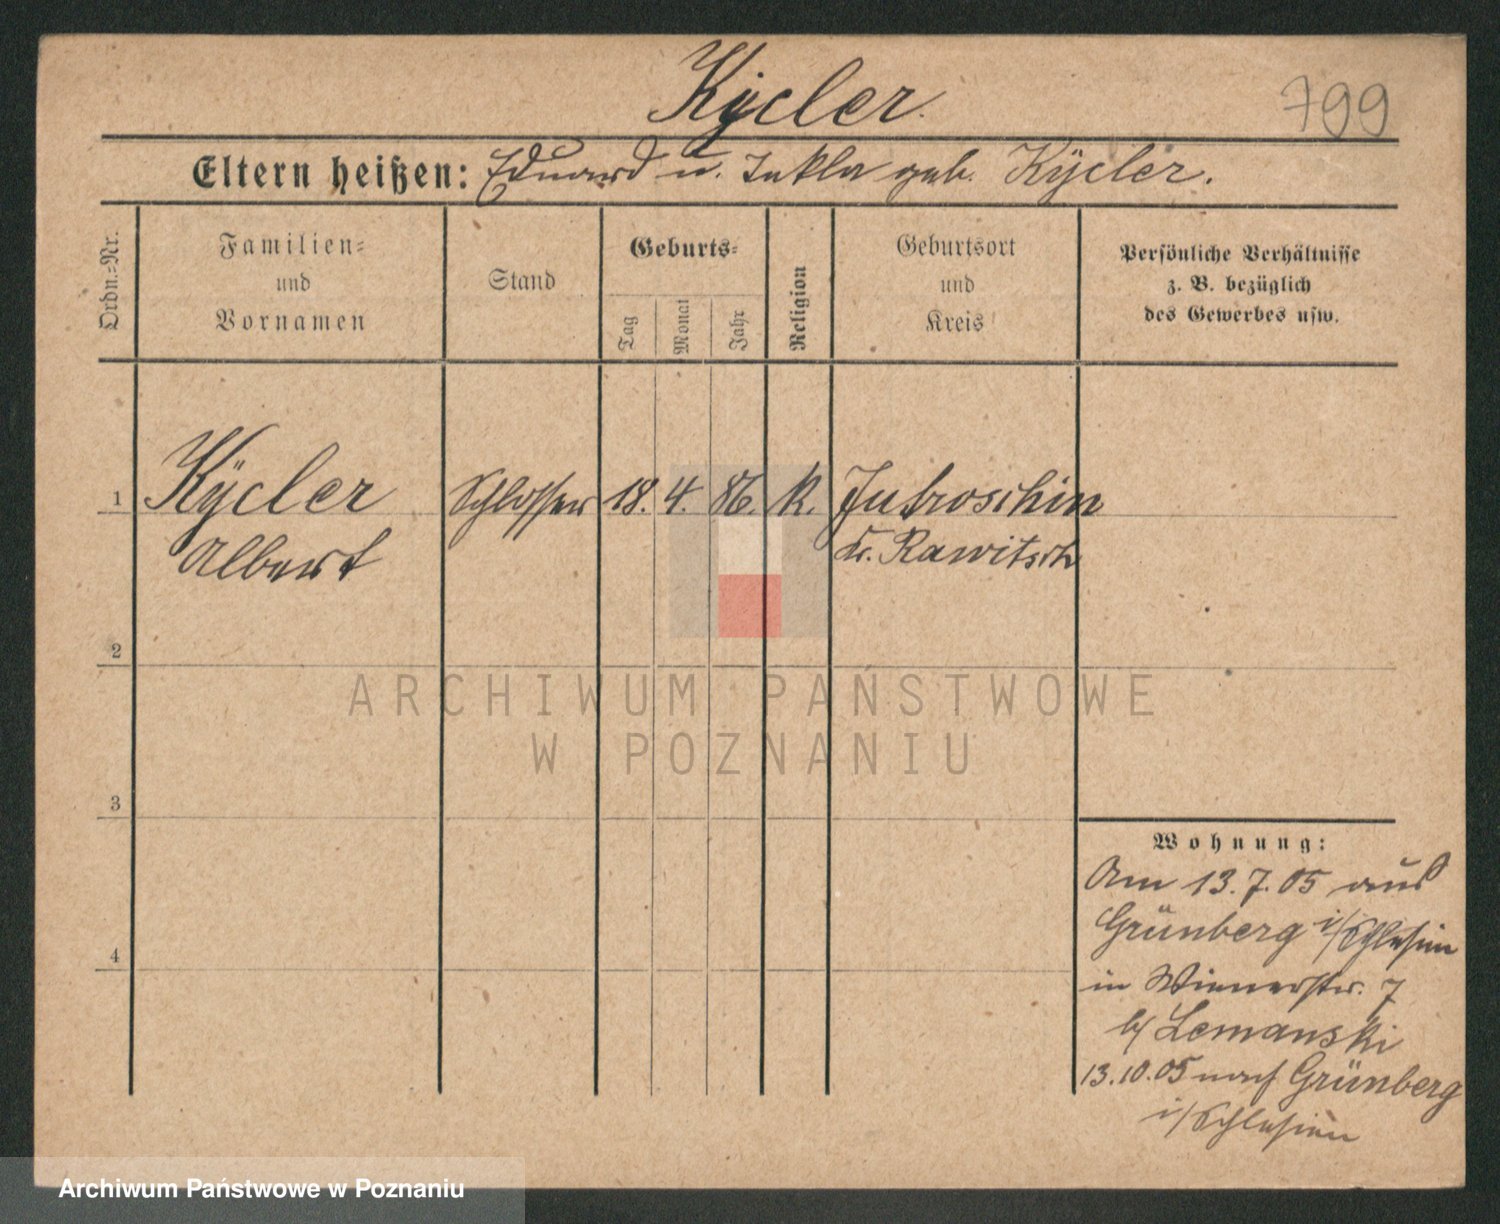 Kycler.
799
Eltern heißen: Eduard u. Tekla geb. Kÿcler.
Ordn.=Nr.
Familien=
und
Vornamen
Stand
Geburts=
Tag
Monat
Jahr
Religion
Geburtsort
und
Kreis
Persönliche Verhältnisse
z. B. bezüglich
des Gewerbes usw.
1 Kÿcler Schlosser 18. 4. 86. k. Jutroschin
Albert Kr. Rawitsch
2
ARCHIWUM PAŃSTWOWE
W POZNANIU
3
Wohnung:
Am 13.7.05 aus
Grünberg i/Schlesien
4
in Wienerstr. 7
b/ Lemanski
13.10.05 nach Grünberg
i/Schlesien
Archiwum Państwowe w Poznaniu